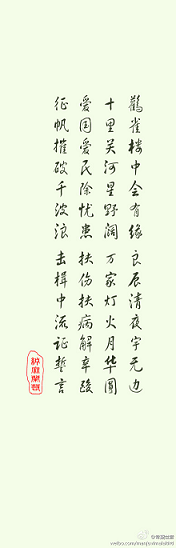 鹳雀楼中会有缘 良辰清夜宇无边
十里关河星野阔 万家灯火月华圆
爱国爱民除忧患 扶伤扶病解辛酸
征帆摧破千波浪 击楫中流证誓言